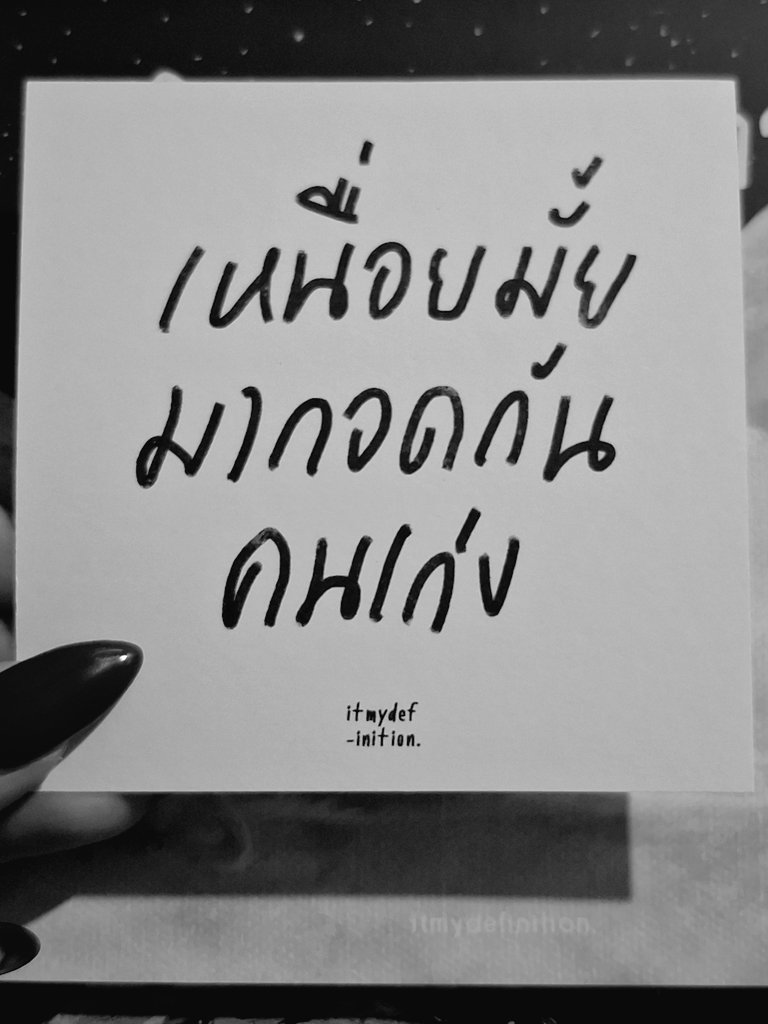 เหนื่อยมั้ย
มากอดกัน
คนเก่ง
itmydef
-inition.
itmydefinition.